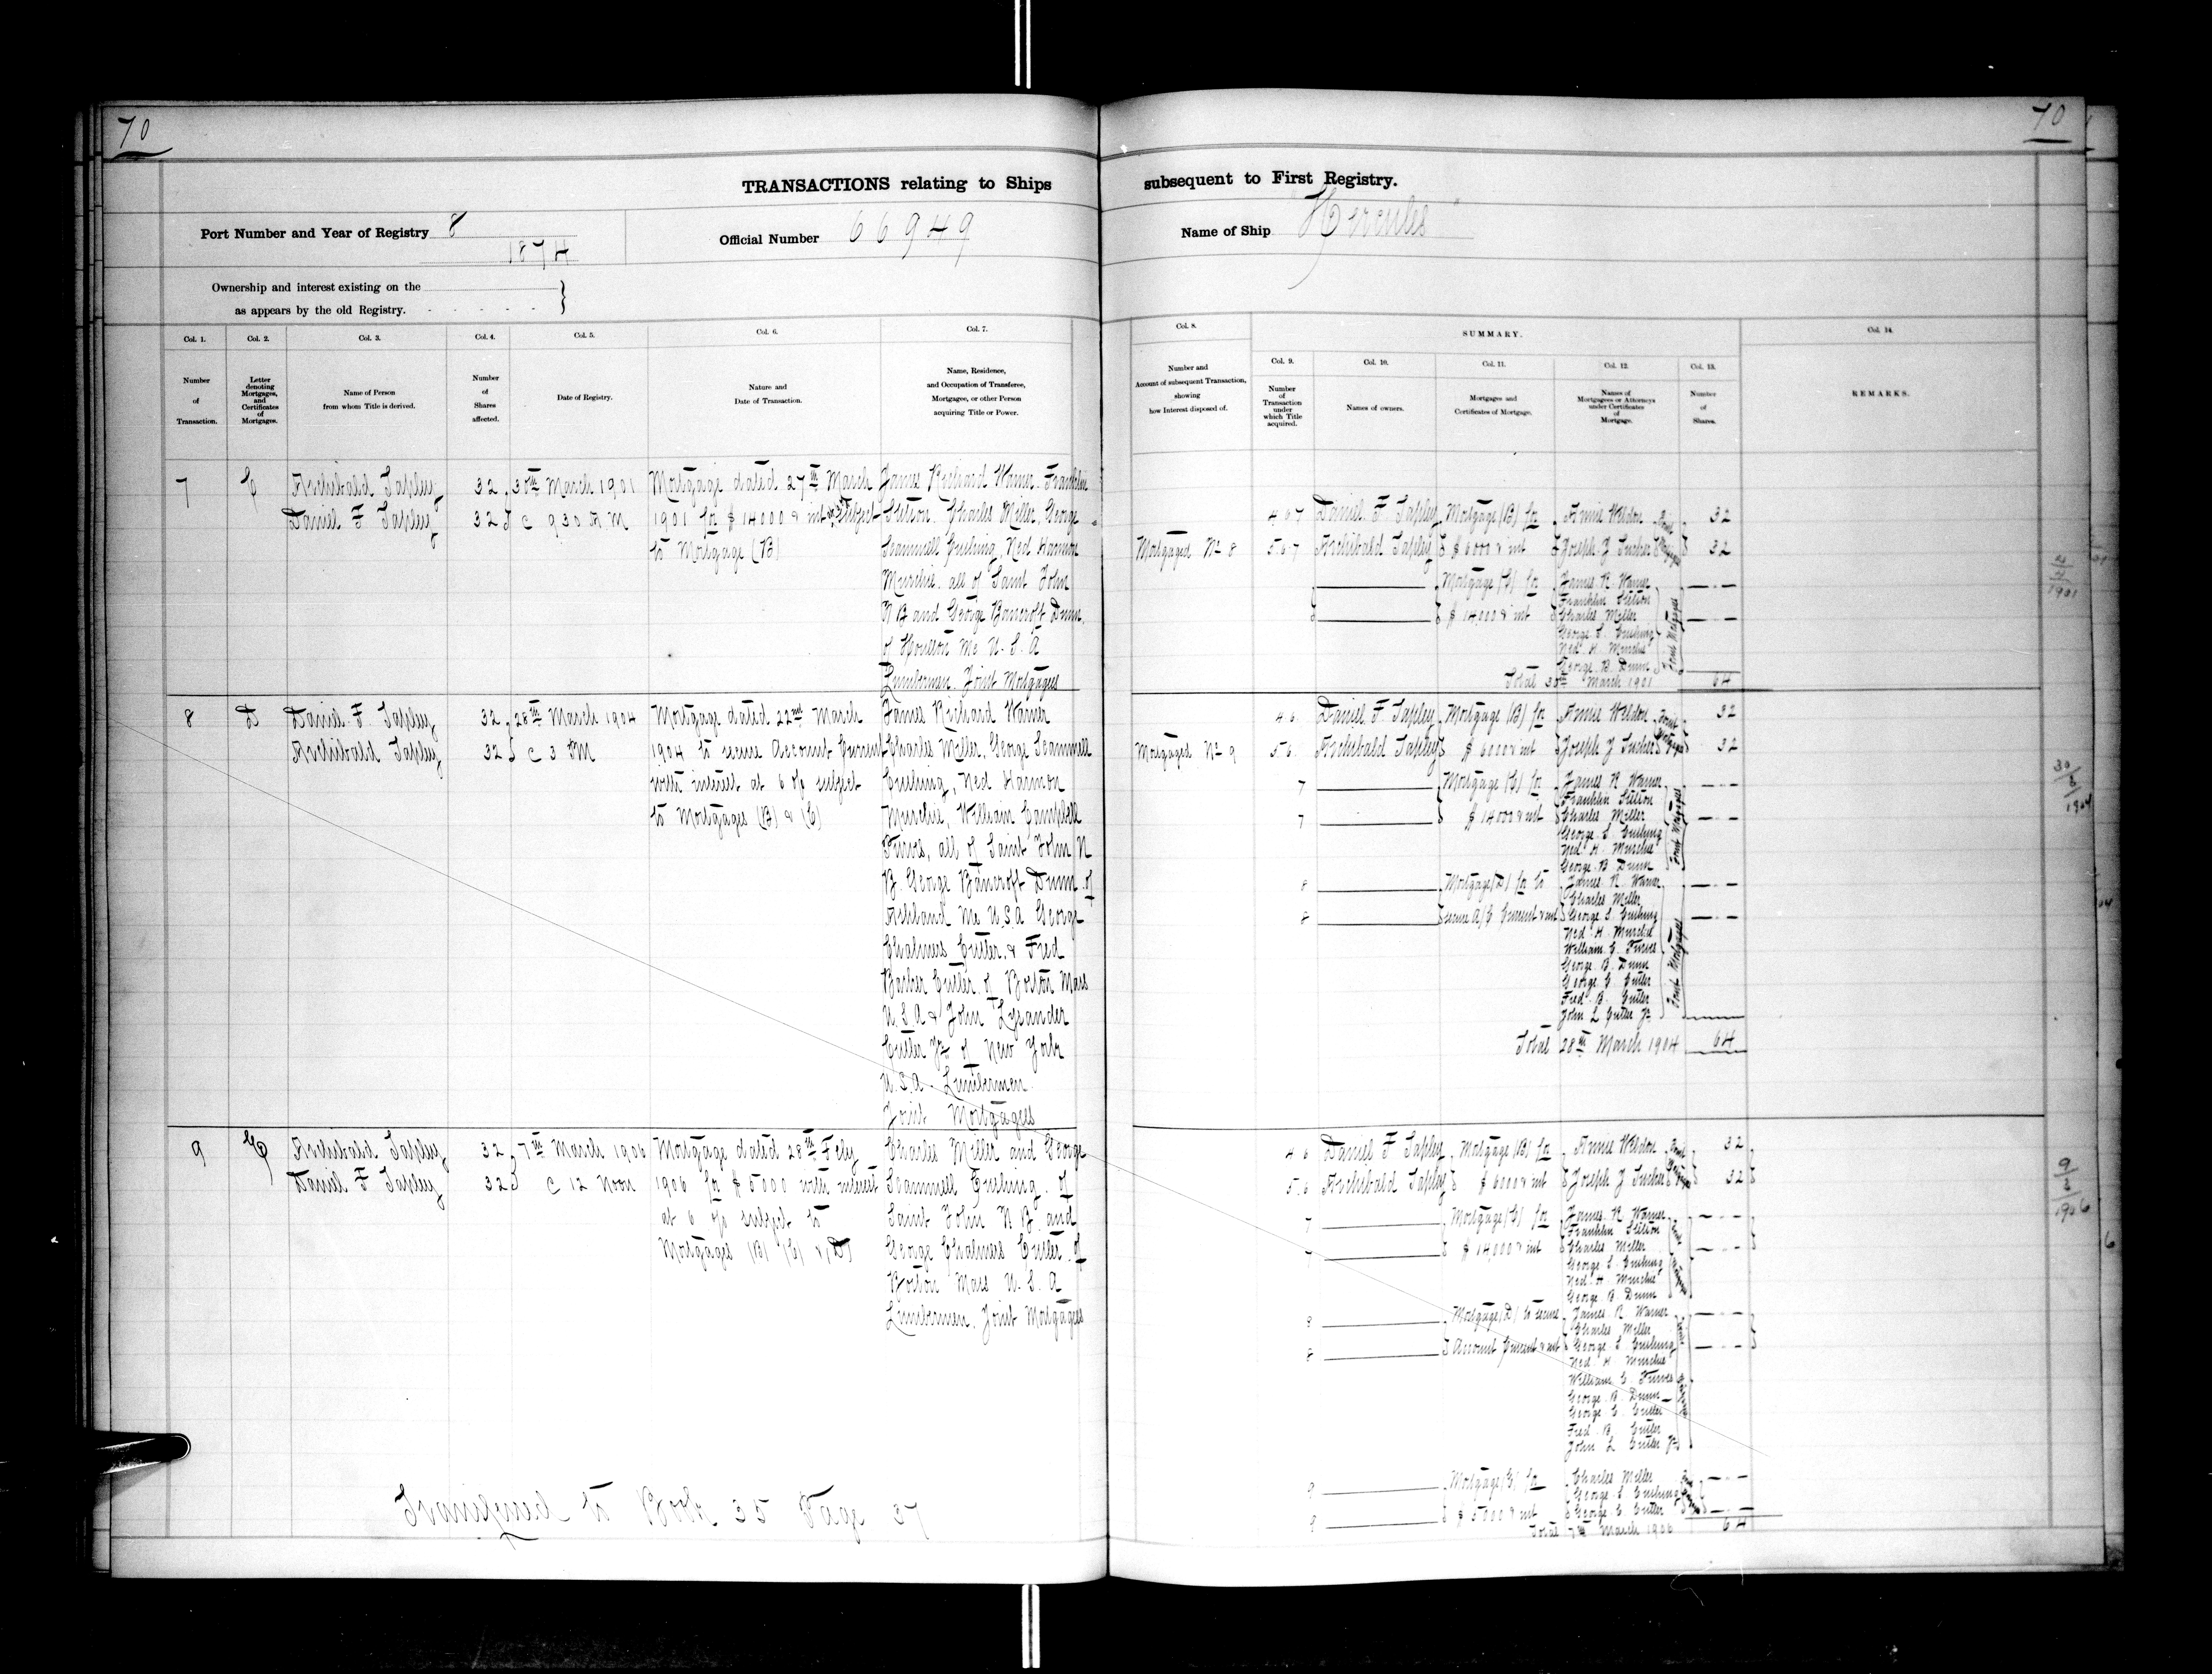 70
70
TRANSACTIONS relating to Ships subsequent to First Registry.
Port Number and Year of Registry 8
1874
Official Number 66949
Name of Ship "Hercules"
Ownership and interest existing on the
as appears by the old Registry.
Col. 1.
Number
of
Transaction.
Col. 2.
Letter
denoting
Mortgages,
and
Certificates
of
Mortgages.
Col. 3.
Name of Person
from whom Title is derived.
Col. 4.
Number
of
Shares
affected.
Col. 5.
Date of Registry.
Col. 6.
Nature and
Date of Transaction.
Col. 7.
Name, Residence,
and Occupation of Transferee,
Mortgagee, or other Person
acquiring Title or Power.
Col. 8.
Number and
Account of subsequent Transaction,
showing
how Interest disposed of.
SUMMARY.
Col. 9.
Number
of
Transaction
under
which Title
acquired.
Col. 10.
Names of owners.
Col. 11.
Mortgages and
Certificates of Mortgage.
Col. 12.
Names of
Mortgagees or Attorneys
under Certificates
of
Mortgage.
Col. 13.
Number
of
Shares.
Col. 14.
REMARKS.
7
C
Archibald Tapley
Daniel F Tapley
32
32
30th March 1901
@ 9 30 A M
Mortgage dated 27th March
1901 for $14000 & int subject
to Mortgage (B)
James Richard Warner Franklin
Stetson. Charles Miller, George
Scammell Cushing, Ned Harmon
Murchie. all of Saint John
N B and George Bancroft Dunn.
of Houlton Me U. S. A
Lumbermen. Joint Mortgagees
Mortgaged No 8
4 6 7 Daniel F. Tapley Mortgage (B) for Annie Weldon 32
5.6.7 Archibald Tapley $6000 & int Joseph J Tucker 32
Joint Mortgagees
Mortgage (C) for
$14,000 & int
James R. Warner
Franklin Stetson
Charles Miller
George S. Cushing
Ned. H. Murchie
George. B. Dunn
Joint Mortgagees
Total 30th March 1901 64
8
D
Daniel F. Tapley
Archibald Tapley
32
32
28th March 1904
@ 3 PM
Mortgage dated 22nd March
1904 to secure Account Current
with interest at 6 o/o subject
to Mortgages (B) & (C)
James Richard Warner
Charles Miller, George Scammell
Cushing, Ned Harmon
Murchie, William Campbell
Purves, all of Saint John N
B. George Bancroft Dunn of
Ashland Me U.S.A George
Chalmers Cutler, & Fred
Barker Cutler of Boston Mass
U.S.A & John Lysander
Cutler Jr of New York
U.S.A. Lumbermen
Joint Mortgagees
Mortgaged No 9
4 6. Daniel F. Tapley Mortgage (B) for Annie Weldon 32
5 6. Archibald Tapley $6000 & int Joseph J Tucker 32
Joint Mortgagees
7
7
Mortgage (C) for
$14000 & int
James R Warner
Franklin Stetson
Charles Miller
George S. Cushing
Ned H. Murchie
George B Dunn
Joint Mortgagees
8
8
Mortgage (D) for to
secure A/C Current & int
James R. Warner
Charles Miller
George S. Cushing
Ned H. Murchie
William C. Purves
George. B. Dunn
George C. Cutler
Fred B. Cutler
John L Cutler Jr
Joint Mortgagees
Total 28th March 1904 64
30/3/1904
9
E
Archibald Tapley
Daniel F Tapley
32
32
7th March 1906
@ 12 Noon
Mortgage dated 28th Feby
1906 for $5000 with interest
at 6 o/o subject to
Mortgages (B) (C) & (D)
Charles Miller and George
Scammell Cushing. of
Saint John N B. and
George Chalmers Cutler. of
Boston Mass U. S. A
Lumbermen. Joint Mortgagees
4 6 Daniel F Tapley Mortgage (B) for Annie Weldon 32
5.6 Archibald Tapley $6000 & int Joseph J Tucker 32
7
7
Mortgage (C) for
$14,000 & int
James R Warner
Franklin Stetson
Charles Miller
George S. Cushing
Ned. H. Murchie
George. B. Dunn
8
8
Mortgage (D) to secure
Account Current & int
James R. Warner
Charles Miller
George S Cushing
Ned H Murchie
William. C Purves
George B. Dunn
George C. Cutler
Fred. B. Cutler
John L Cutler Jr
9
9
Mortgage (E) for
$5000 & int
Charles Miller
George S Cushing
George C Cutler
Total 7th March 1906 64
9/3/1906
Transferred to Book 35 Page 37